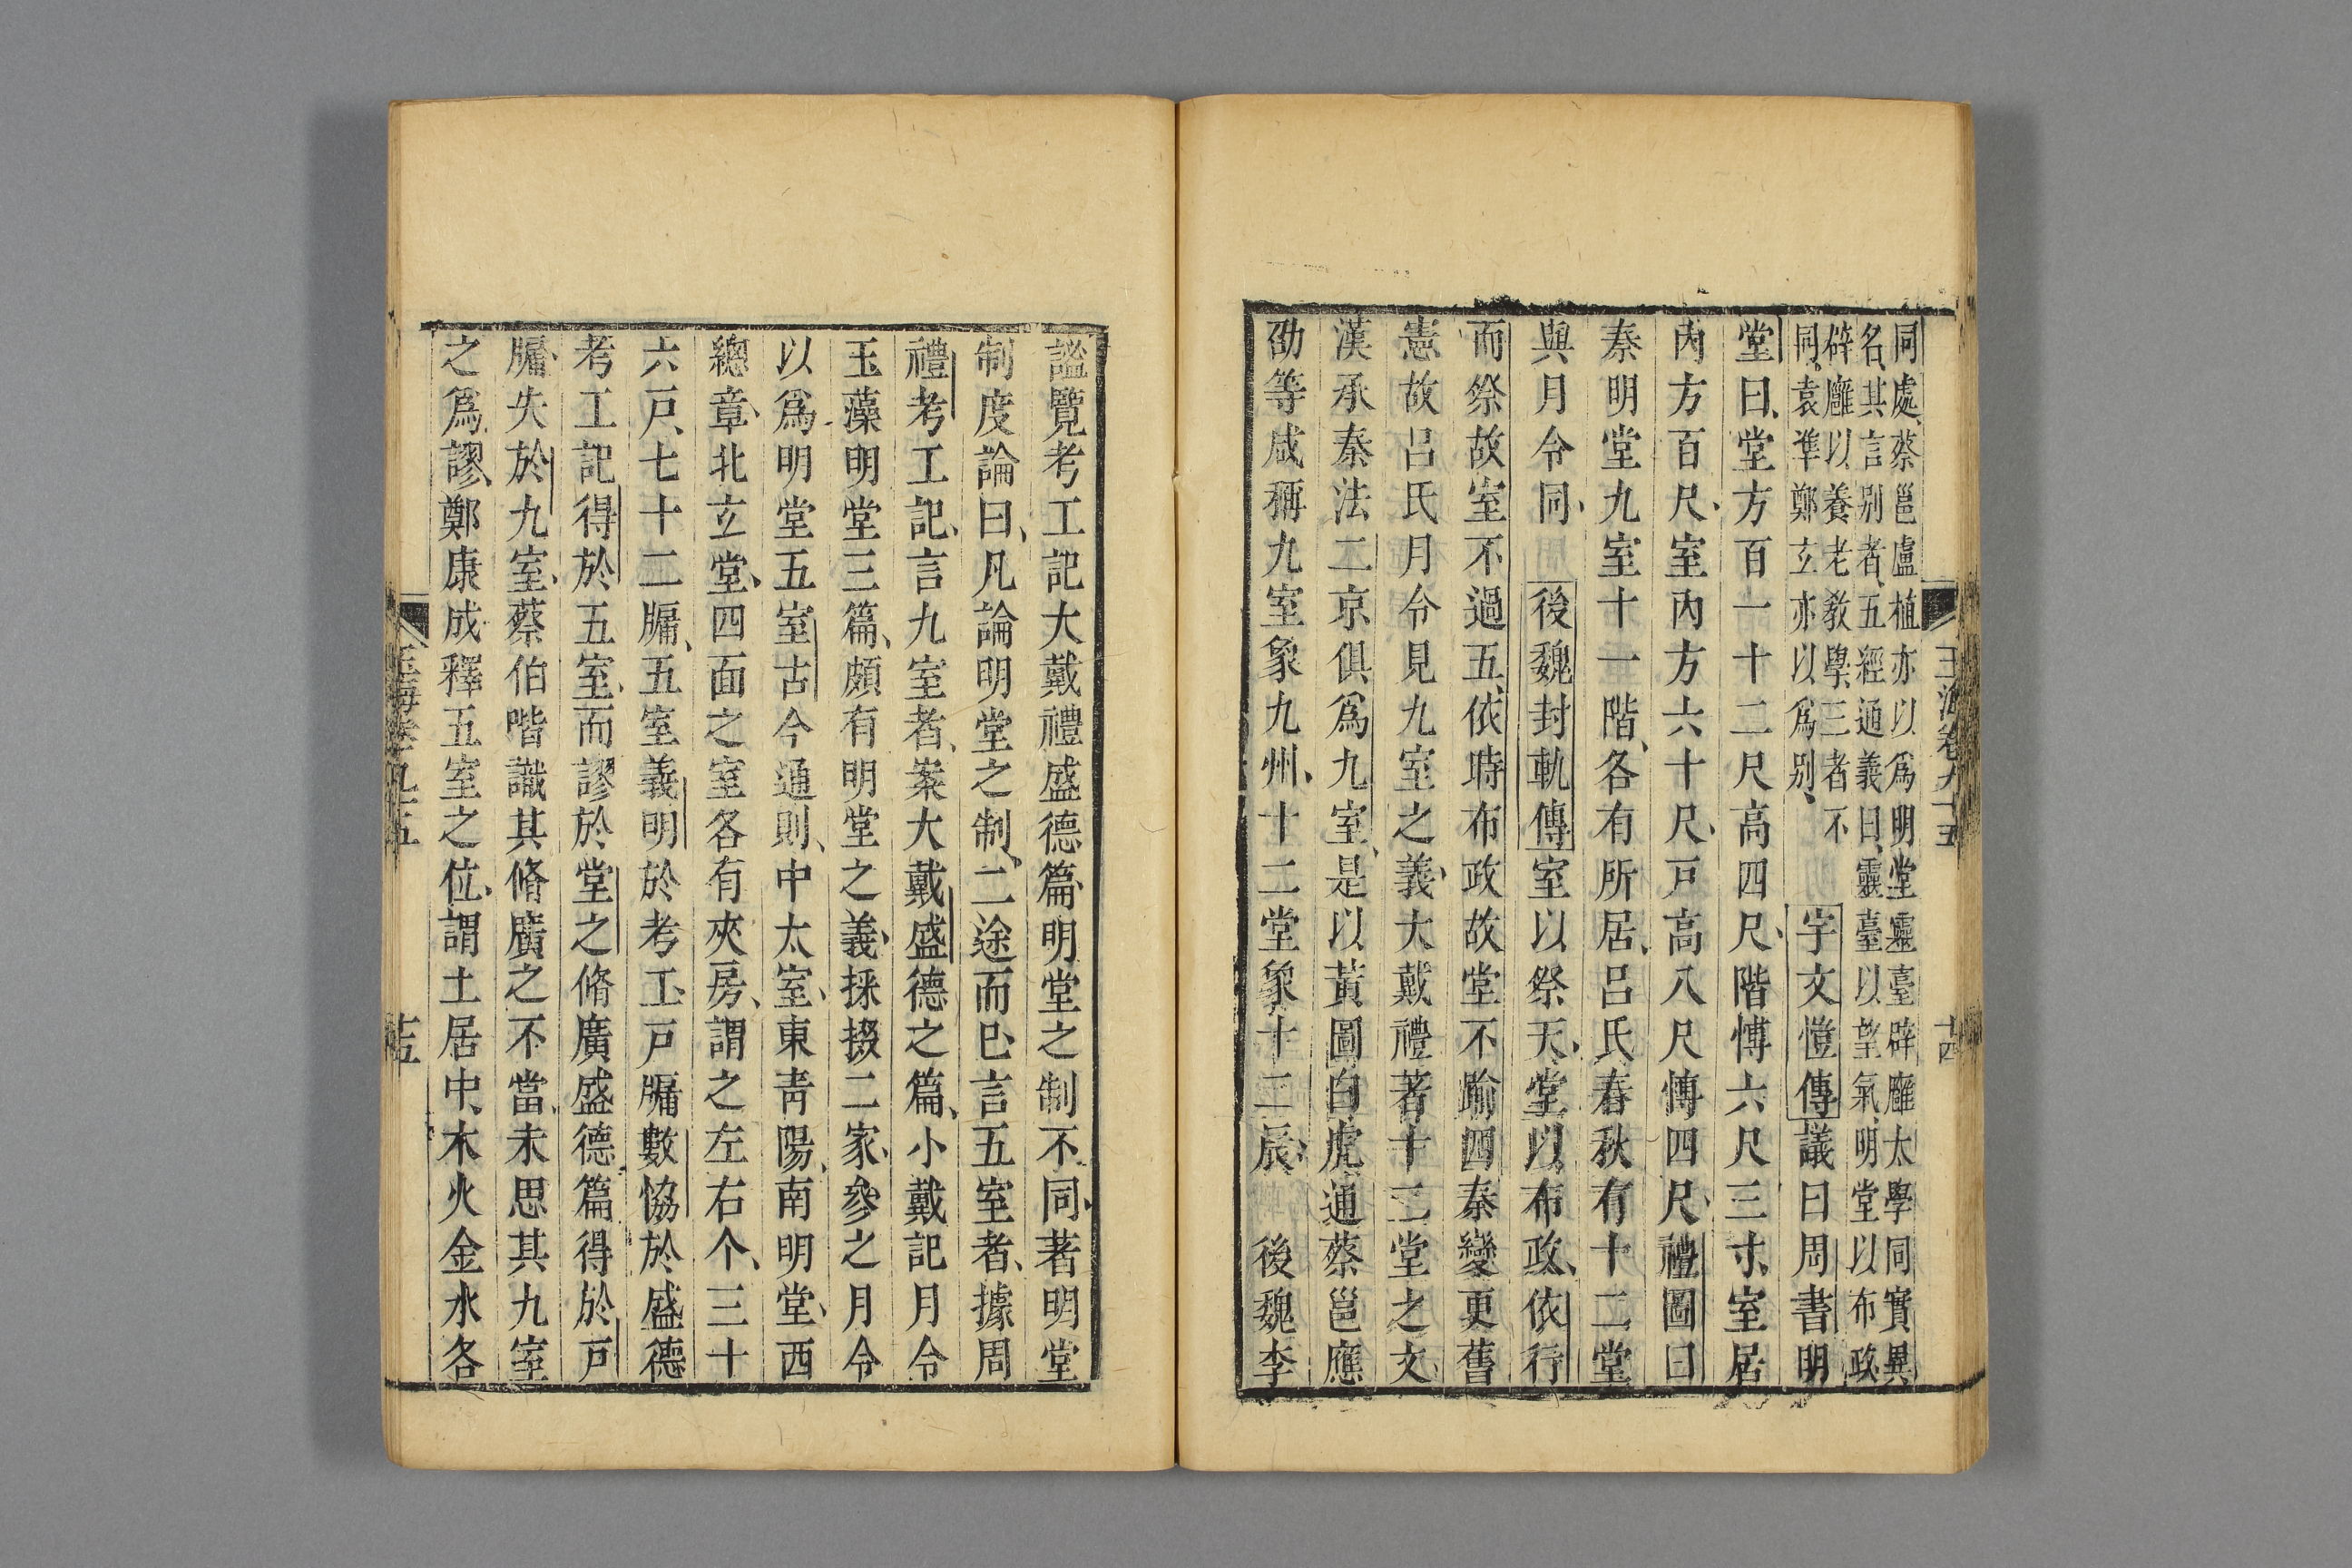 同處蔡邕盧植亦以爲明堂靈臺辟廱太學同實異
名其言別者五經通義曰靈臺以望氣明堂以布政
辟廱以養老教學三者不
同袁準鄭玄亦以爲別
宇文愷傳議曰周書明
堂曰堂方百一十二尺高四尺階博六尺三寸室居
内方百尺室内方六十尺戸高八尺博四尺禮圖曰
秦明堂九室十一階各有所居呂氏春秋有十二堂
與月令同後魏封軌傳室以祭天堂以布政依行
而祭故室不過五依時布政故堂不踰四秦變更舊
憲故呂氏月令見九室之義大戴禮著十二堂之文
漢承秦法二京俱爲九室是以黃圖白虎通蔡邕應
劭等咸稱九室象九州十二堂象十二辰後魏李
玉海卷九十五
十四
謐覽考工記大戴禮盛德篇明堂之制不同著明堂
制度論曰凡論明堂之制二途而已言五室者據周
禮考工記言九室者案大戴盛德之篇小戴記月令
玉藻明堂三篇頗有明堂之義採掇二家參之月令
以爲明堂五室古今通則中太室東靑陽南明堂西
總章北玄堂四面之室各有夾房謂之左右个三十
六戸七十二牖五室義明於考工戸牖數恊於盛德
考工記得於五室而謬於堂之脩廣盛德篇得於戸
牖失於九室蔡伯喈識其脩廣之不當未思其九室
之爲謬鄭康成釋五室之位謂土居中木火金水各
玉海卷九五
十五